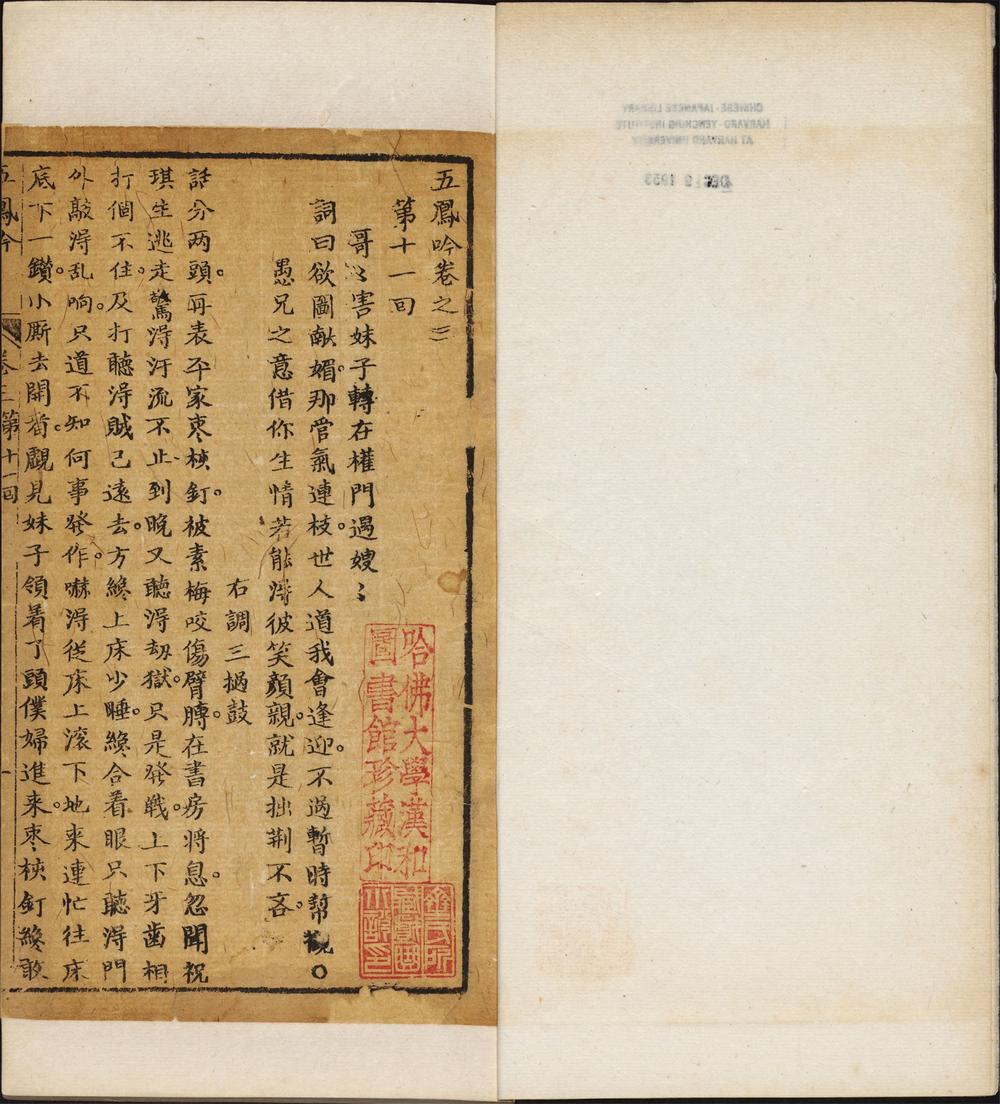 CHINESE-JAPANESE LIBRARY
HARVARD-YENCHING INSTITUTE
AT HARVARD UNIVERSITY
DEC 9 1953
五鳳吟卷之三
第十一回
哥〻害妹子轉在權門遇嫂〻
詞曰欲圖献媚。那管氣連枝。世人道我會逢迎。不過暫時幇襯○
愚兄之意借你生情若能淂彼笑顔親。就是拙荆不吝。
右調三撾鼓
話分两頭。再表平家枣核釘。被素梅咬傷臂膊。在書房将息。忽聞祝
琪生逃走驚淂汗流不止到晚又聽淂劫獄。只是發戰。上下牙齒相
打個不住。及打聽淂賊已遠去。方纔上床少睡。纔合着眼只聽淂門
外敲淂乱响。只道不知何事發作。嚇淂従床上滚下地来連忙往床
底下一鑽。小厮去開看。覷見妹子領着了頭僕婦進来。枣核釘纔敢
五鳳吟 卷三第十一回 一
哈佛大學漢和
圖書館珍藏印